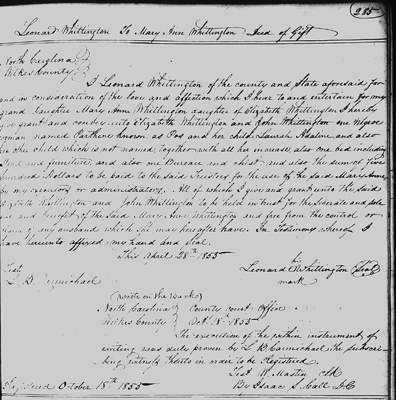 285
Leonard Whittington To Mary Ann Whittington Deed of Gift
North Carolina
Wilkes County
I Leonard Whittington of the county and State aforesaid for
and in consideration of the love and affection which I bear to and entertain for my
grand daughter Mary Anne Whittington daughter of Elizabeth Whittington I hereby
give grant and convey unto Elizabeth Whittington and John Whittington one Negroe
woman named known as and her child Adaline and also
her child which is not named together with all her increase also one bed including
and furniture, and also one Bureau and chest and also the sum of five
hundred Dollars to be paid to the said Trustees for the use of the said Mary Anne
by my executors or administrators, All of which I give and grant unto the said
Elizabeth Whittington and John Whittington to be held in trust for the seperate and sole
use and benefit of the said Mary Ann Whittington and free from the control or
of any husband which she may hereafter have. In Testimony whereof I
have hereunto affixed my hand and seal
This April 28th 1855
Test his
L. B. Carmichael Leonard Whittington (Seal)
mark
(wrote on the back)
North Carolina County court Office
Wilkes County Oct 18th 1855
The execution of the within instrument of
writing was duly proven by L B Carmichael the subscri-
bing witness thereto in order to be Registered
Test W. Mastin Clk
By Isaac S. Call D.C
Registered October 18th 1855